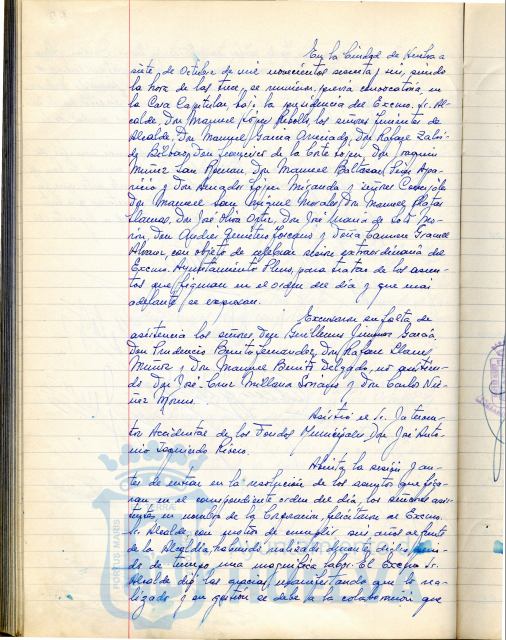 En la Ciudad de Huelva a
siete de Octubre de mil novecientos sesenta y uno, siendo
la hora de las trece, se reunieron previa convocatoria, en
la Casa Capitular bajo la presidencia del Excmo. Sr. Al-
calde, Don Manuel López Rebollo, los señores Tenientes de
Alcalde, Don Manuel García Arreciado, Don Rafael
Bilbao, Don Francisco de la Corte López, Don Joaquín
Muñiz San Román, Don Manuel Baltasar
y Don Amador López Miranda y señores Concejales
Don Manuel San Miguel Morales, Don Manuel Platas
Llamas, Don José Oliva Ortiz, Don José María de Soto Mo-
rón, Don Andrés y Doña Carmen
Alvarez, con objeto de celebrar sesión extraordinaria del
Excmo. Ayuntamiento Pleno, para tratar de los asun-
tos que figuran en el orden del día y que más
adelante se expresan.
Excusaron su falta de
asistencia los señores Don Guillermo Jiménez García,
Don Prudencio Benito Fernández, Don Rafael Llanes
Muñoz y Don Manuel Benito Delgado, no asistien-
do Don José Cruz Millana y Don Carlos Nú-
ñez Moreno.
Asistió el Sr. Interven-
tor Accidental de los Fondos Municipales Don José Anto-
nio Izquierdo Rivero.
Abierta la sesión y an-
tes de entrar en la de los asuntos que figu-
ran en el correspondiente orden del día, los señores asis-
tentes, en nombre de la Corporación, felicitaron al Excmo.
Sr. Alcalde con motivo de cumplir sus años al frente
de la Alcaldía, habiendo realizado durante dicho perío-
do de tiempo una magnífica labor. El Excmo Sr.
Alcalde dió las gracias, manifestando que lo rea-
lizado y su gestión se debe a la colaboración que
PORTUS MARIS